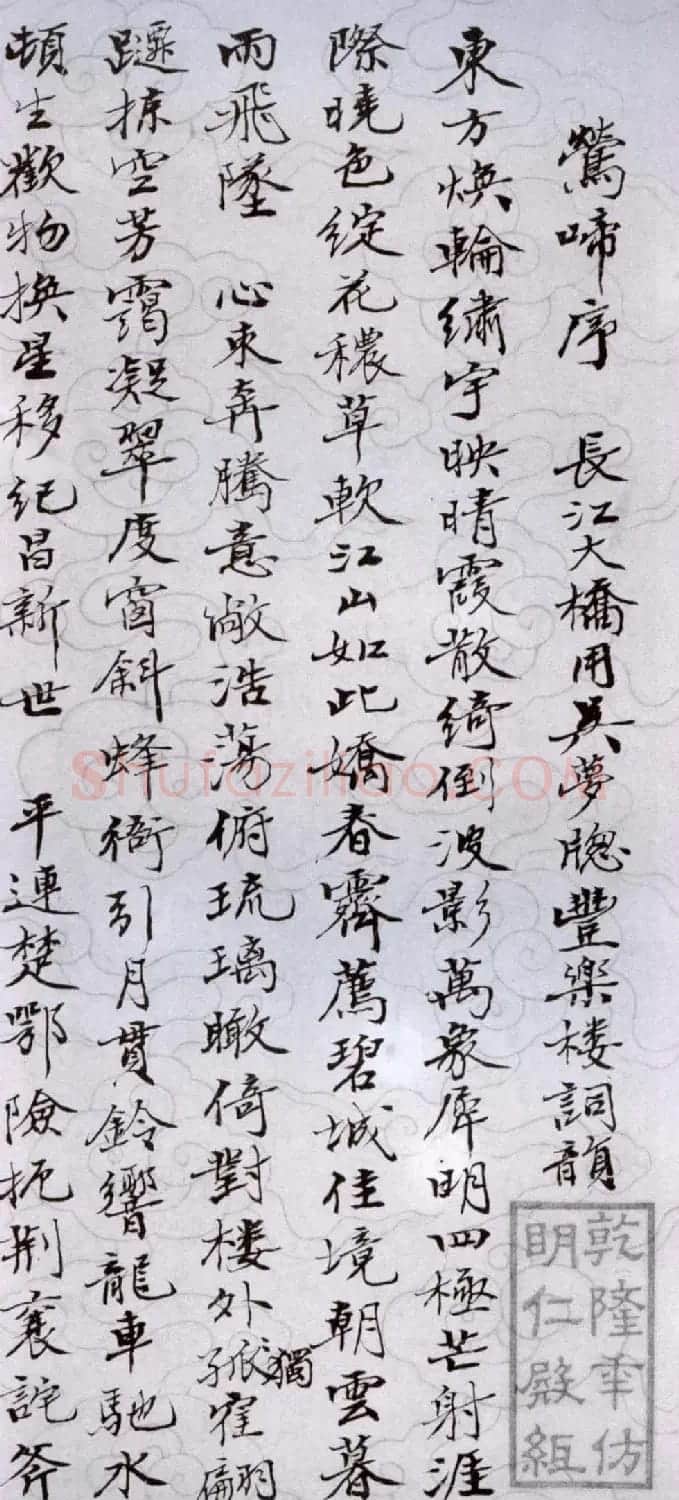 鶯啼序 長江大橋用吳夢窗豐樂楼詞韻
東方煥輪繡宇映晴霞散綺倒波影萬象犀明四極芒射涯
際曉色綻花穠草軟江山如此嬌春霽薦碧城佳境朝雲暮
雨飛墜 心東奔騰意敞浩蕩俯琉璃瞰倚對楼外孤隺翩
獨
躚掠空芳靄凝翠度窗斜蜂衙引月貫鈴響龍車馳水
頓生歡物換星移紀昌新世 平連楚鄂險扼荆襄詫斧
乾隆年仿
明仁殿紙
Shufaziliao.COM